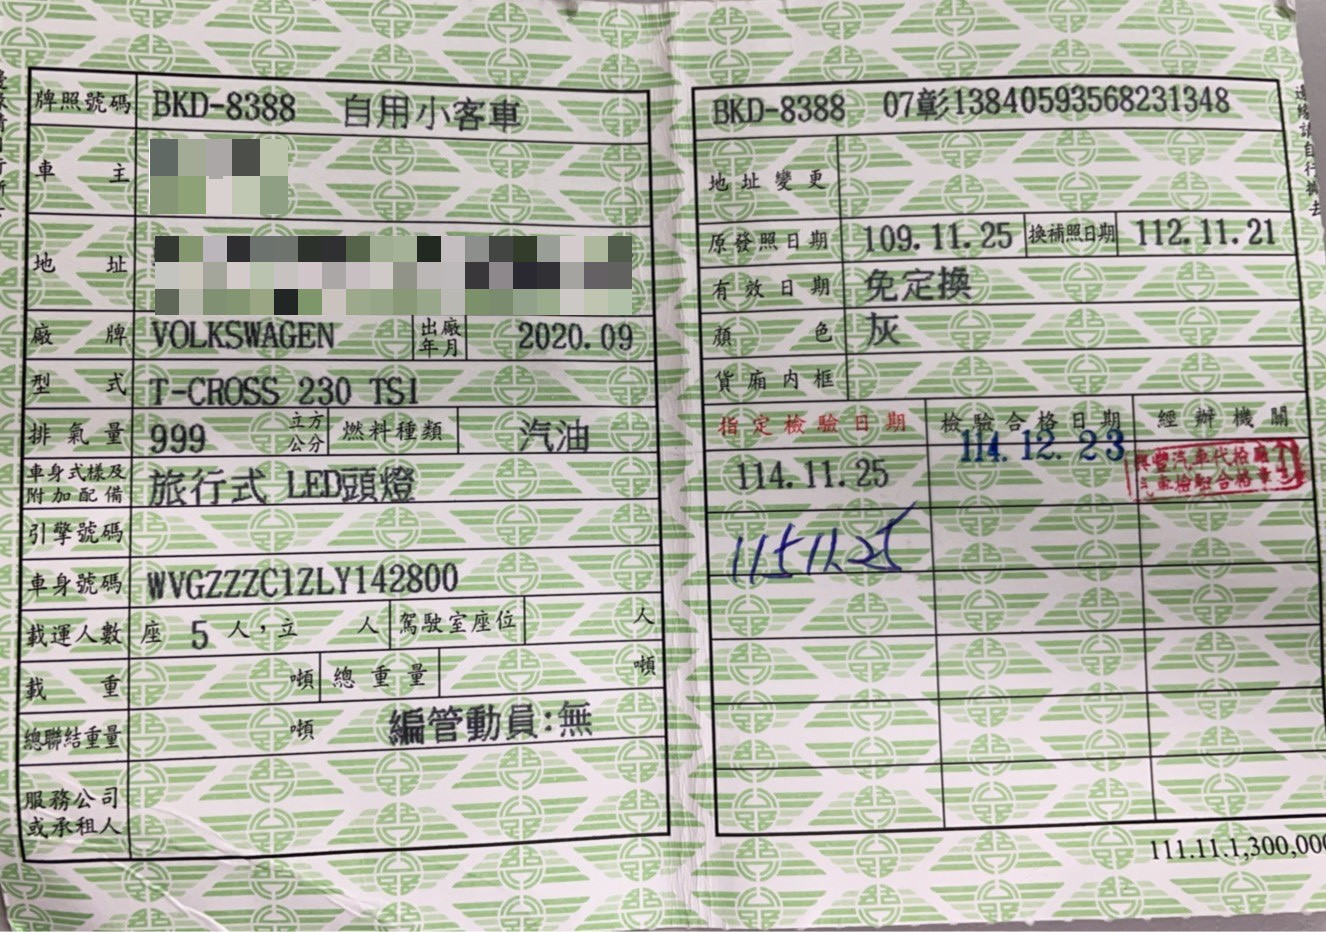 牌照號碼 BKD-8388 自用小客車
車主
地址
廠牌 VOLKSWAGEN 出廠年月 2020.09
型式 T-CROSS 230 TSI
排氣量 999 立方公分 燃料種類 汽油
車身式樣及附加配備 旅行式 LED頭燈
引擎號碼
車身號碼 WVGZZZC1ZLY142800
載運人數 座 5 人，立 人 駕駛室座位 人
載重 噸 總重量 噸
總聯結重量 噸 編管動員:無
服務公司或承租人
BKD-8388 07彰13840593568231348
地址變更
原發照日期 109.11.25 換補照日期 112.11.21
有效日期 免定換
顏色 灰
貨廂內框
指定檢驗日期 檢驗合格日期 經辦機關
114.11.25 114.12.23
豐汽車代檢廠
車檢驗合格章
115.11.25
111.11.1,300,000